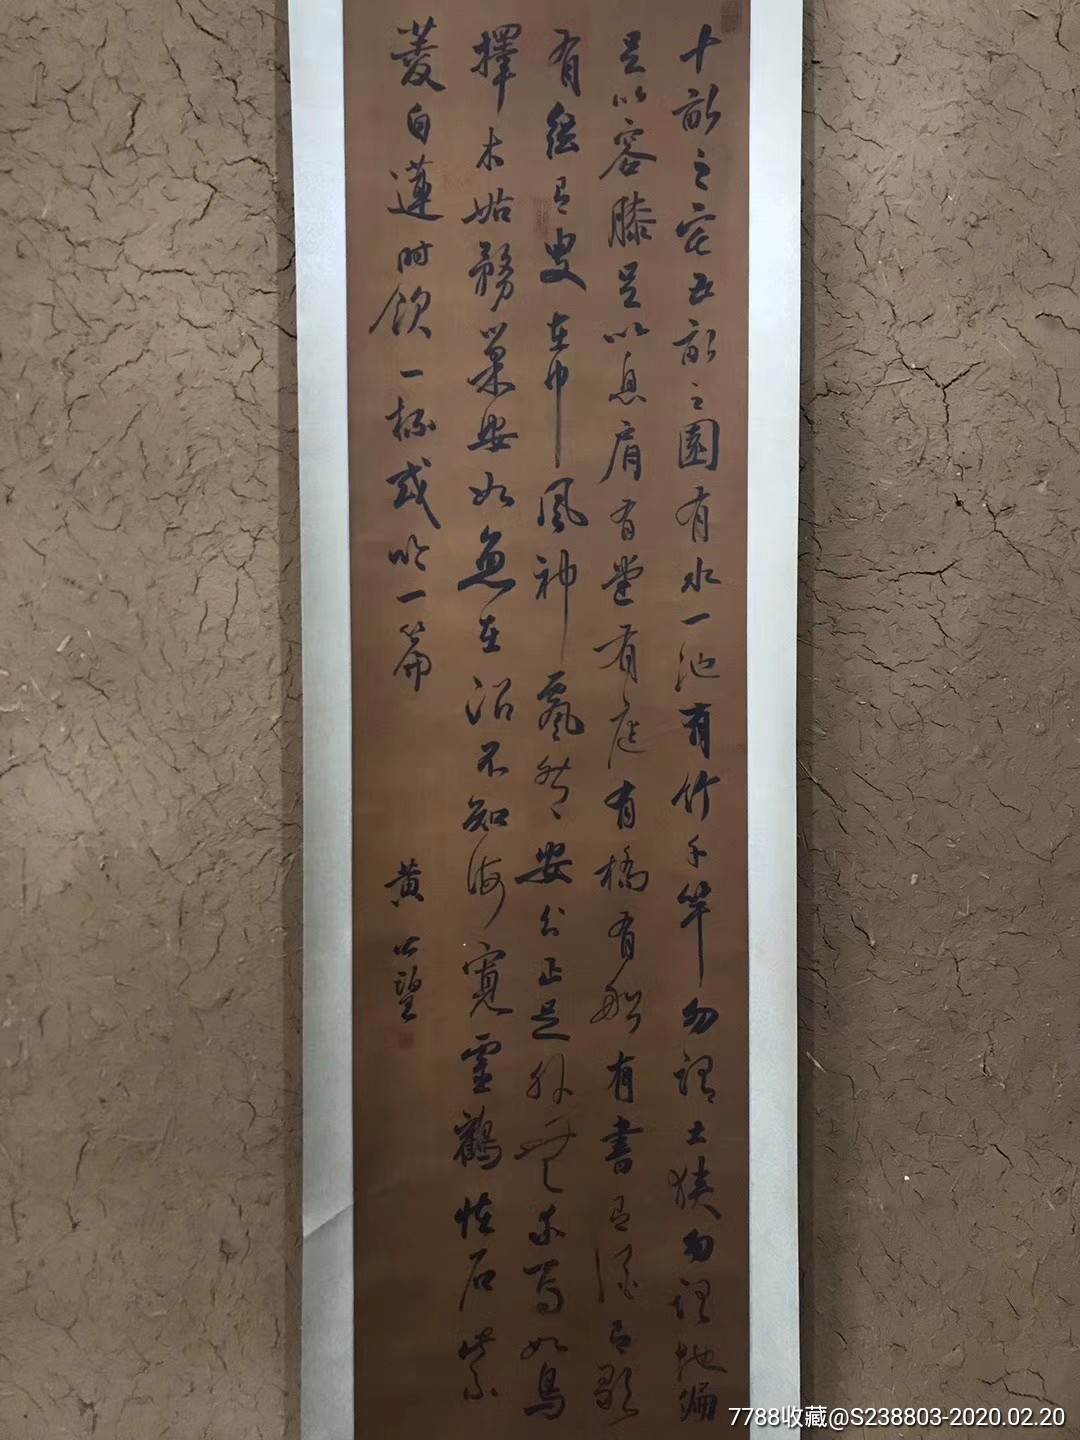 十畝之宅五畝之園有水一池有竹千竿勿謂土狹勿謂地偏
足以容膝足以息肩有堂有庭有橋有船有書有酒有歌
有絃有叟在中風神飄然安分正足外無求焉如鳥
擇木姑務巢安如魚在沼不知海寬靈鶴怪石紫
菱白蓮時飲一杯或吟一篇
黃公望
7788收藏@S238803-2020.02.20